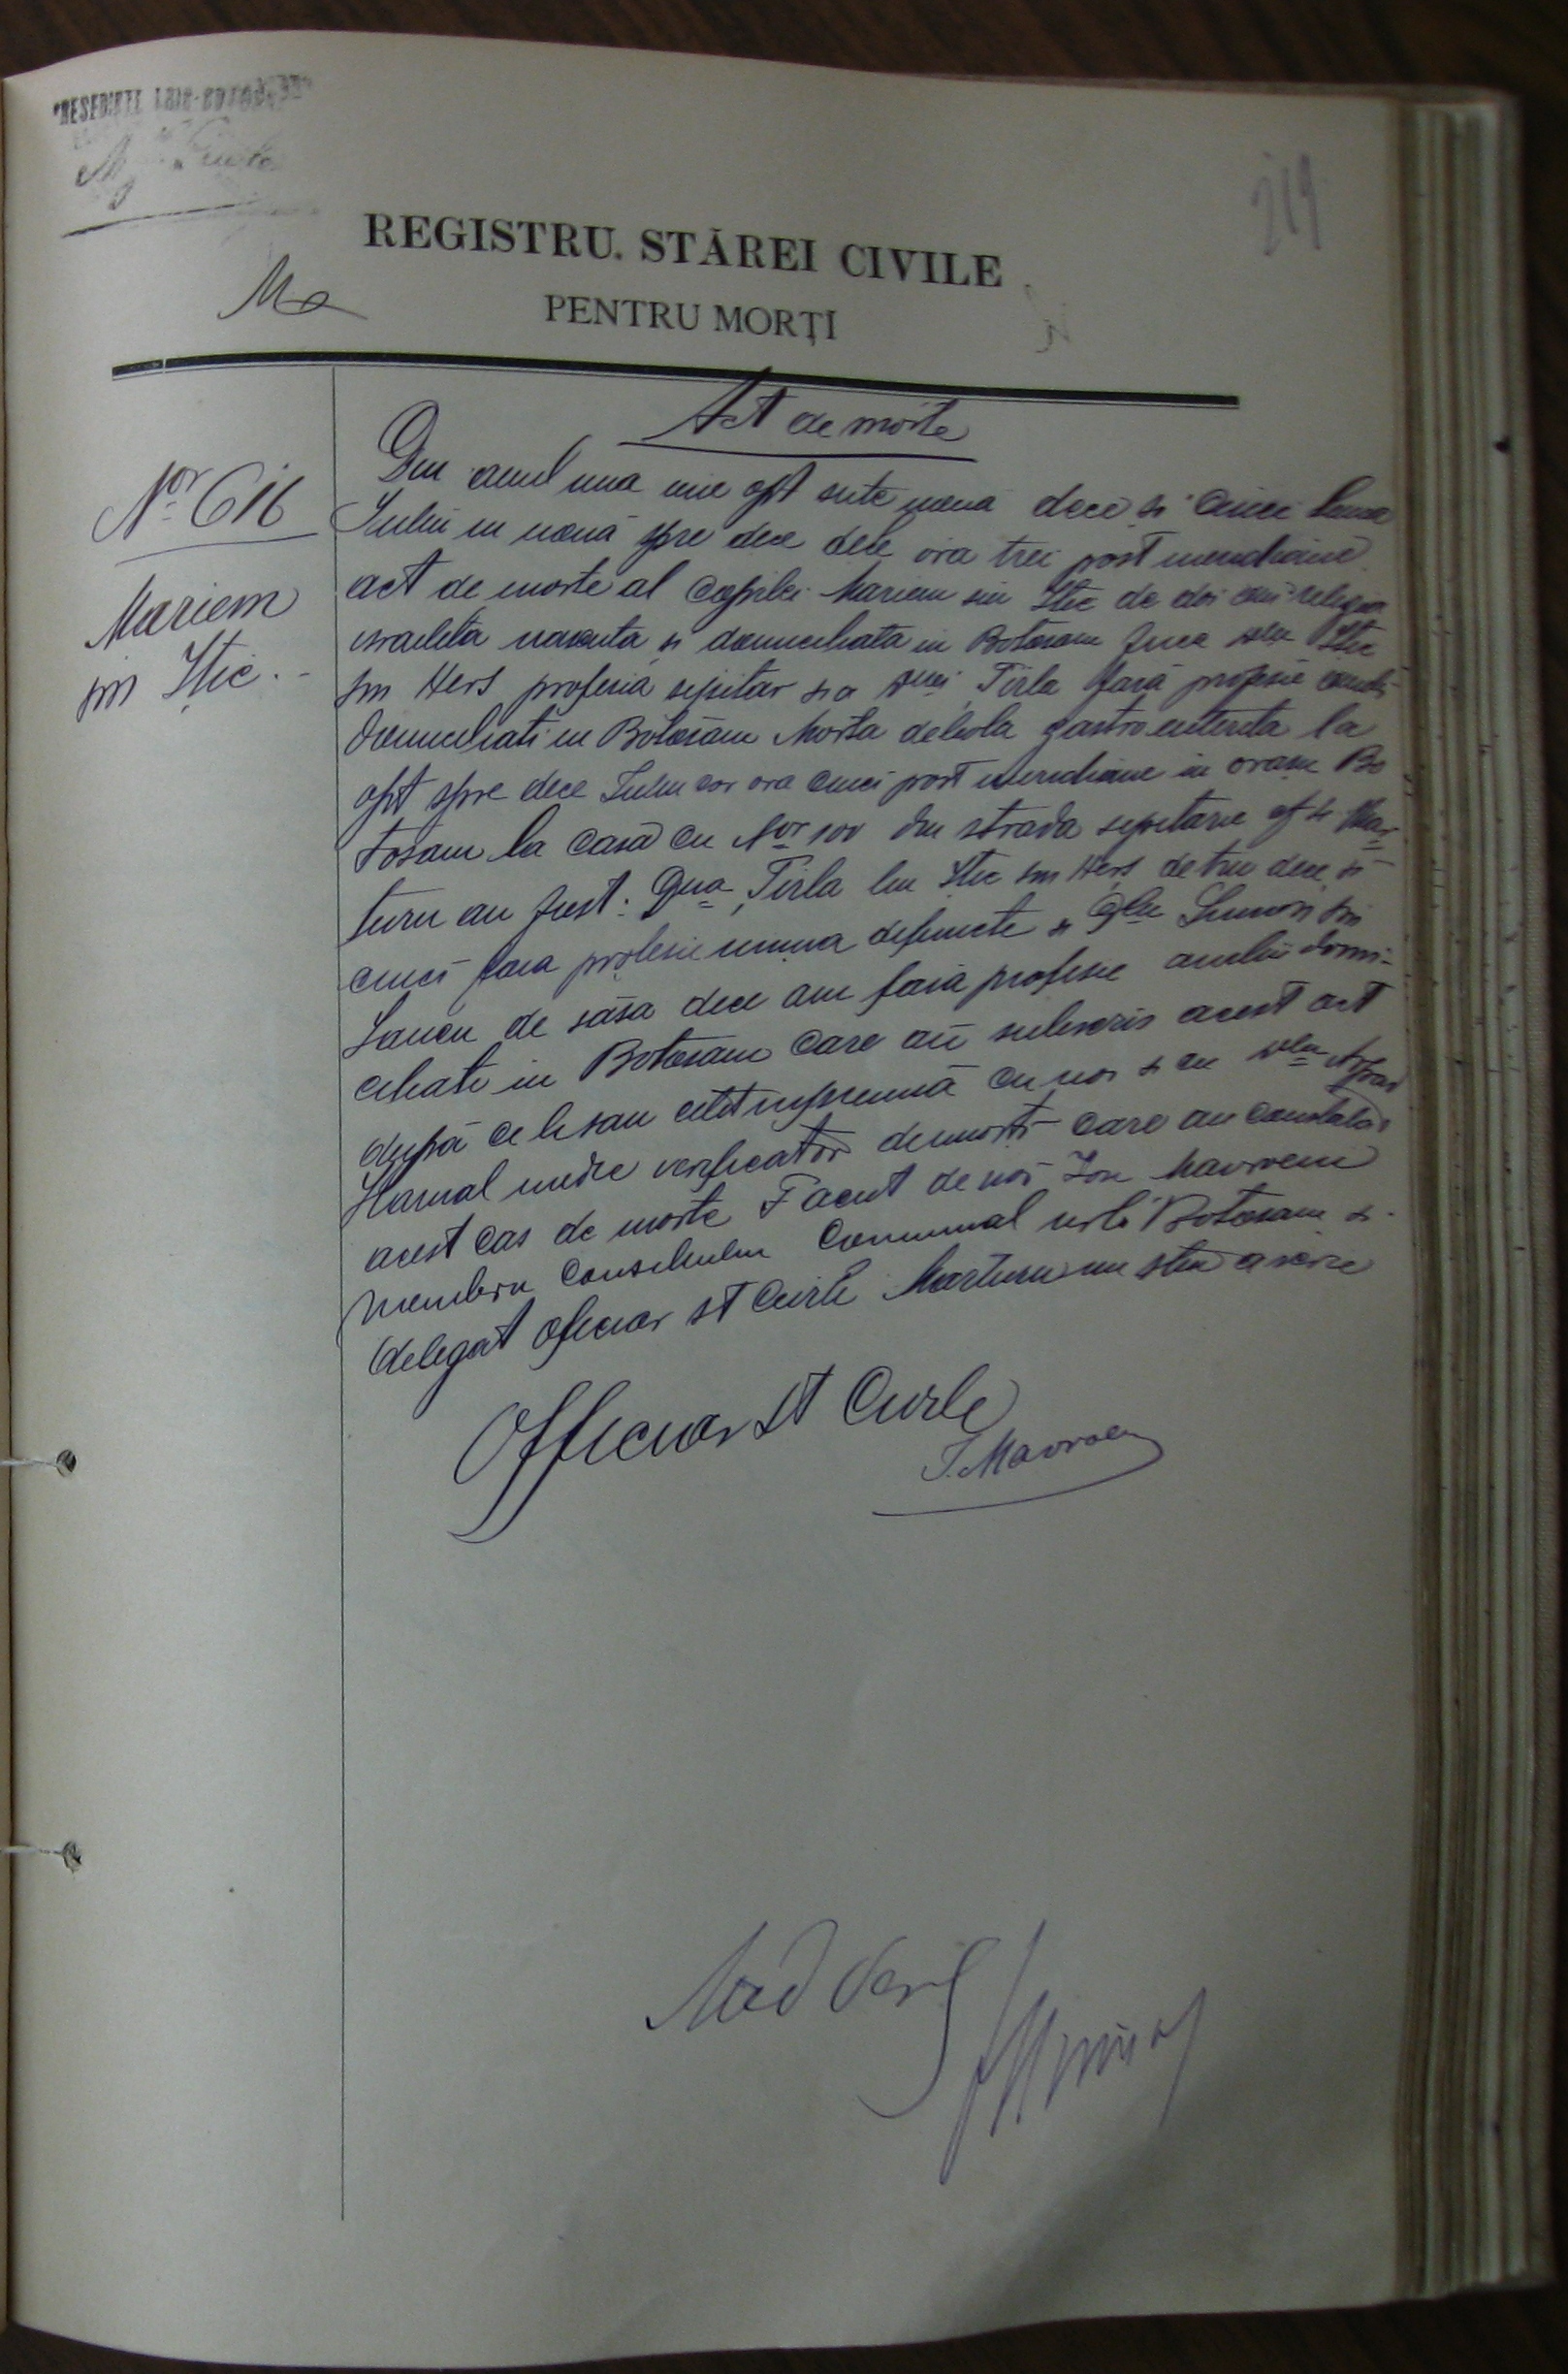 219
REGISTRU. STĂREI CIVILE
PENTRU MORȚI
No
Act de morte
Nor 616
Mariem
sin Ițic.
Din anul una mie opt sute nouă dece și cinci luna
Iuliu in nouă spre dece dele ora trei post meridiane
act de morte al copilei Mariem sin Itic de doi ani religia
israelita nascuta și domiciliata in Botosani fiica Dlui Itic
sin Hers profesia sipitar și a Dnei Țirla fară profesie ambii
domiciliati in Botosani Morta de bola gastro enterita la
opt spre dece Iuliu cor ora cinci post meridiane in orașu Bo
tosani la casa cu Nor 100 din strada sipetarie și Mar
turii au fost: Dna Țirla lui Itic sin Hers de trei deci și
cinci fara profesie muma defuncte și Dlu Simon sin
Iancu de sasa dece ani fara profesie ambii domi-
ciliati in Botosani care au subscris acest act
după ce li sau citit impreună cu noi și cu Dlu
Hamal medic verificator de morti care au constatat
acest cas de morte Facut de noi Ion Mavroeni
membru Consiliului Comunal urbi Botosani și
delegat oficiar st Civile Marturii nu știu a scrie
Officiar St Civile
I. Mavroeni
Med Verif